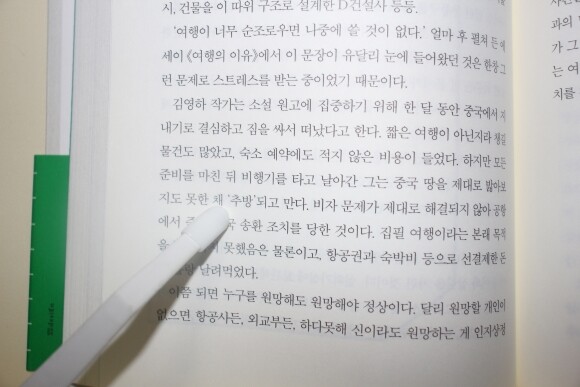 시, 건물을 이 따위 구조로 설계한 D건설사 등등.
'여행이 너무 순조로우면 나중에 쓸 것이 없다.' 얼마 후 펼쳐 든 에
세이 《여행의 이유》에서 이 문장이 유달리 눈에 들어왔던 것은 한창 그
런 문제로 스트레스를 받는 중이었기 때문이다.
김영하 작가는 소설 원고에 집중하기 위해 한 달 동안 중국에서 지
내기로 결심하고 짐을 싸서 떠났다고 한다. 짧은 여행이 아닌지라 챙길
물건도 많았고, 숙소 예약에도 적지 않은 비용이 들었다. 하지만 모든
준비를 마친 뒤 비행기를 타고 날아간 그는 중국 땅을 제대로 밟아보
지도 못한 채 '추방'되고 만다. 비자 문제가 제대로 해결되지 않아 공항
에서 송환 조치를 당한 것이다. 집필 여행이라는 본래 목적
을 못했음은 물론이고, 항공권과 숙박비 등으로 선결제한 돈
달려먹었다.
이쯤 되면 누구를 원망해도 원망해야 정상이다. 달리 원망할 개인이
없으면 항공사든, 외교부든, 하다못해 신이라도 원망하는 게 인지상정
과의
가 그
는 여
치를